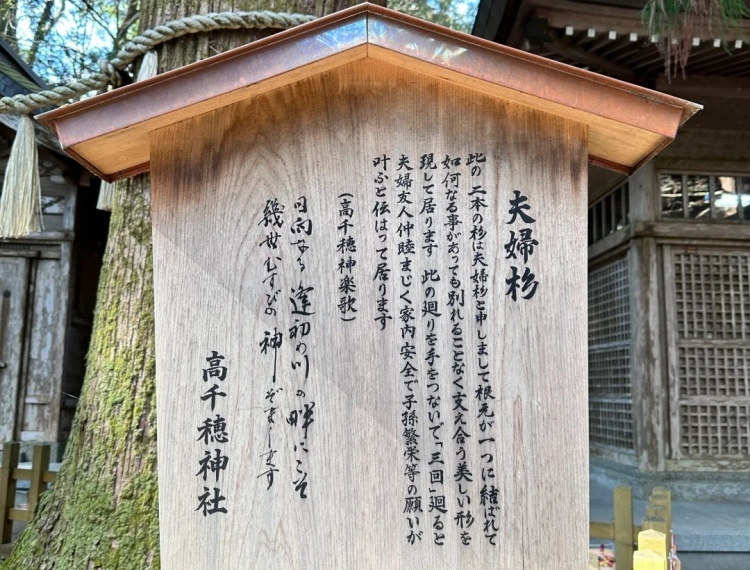 夫婦杉
此の二本の杉は夫婦杉と申しまして根元が一つに結ばれて
如何なる事があっても別れることなく支え合う美しい形を
現して居ります 此の廻りを手をつないで「三回」廻ると
夫婦友人仲睦まじく家内安全で子孫繁栄等の願いが
叶ふと伝はって居ります
(高千穂神楽歌)
日向なる 逢初川の 畔にこそ
幾世むすびの 神ぞまします
高千穂神社